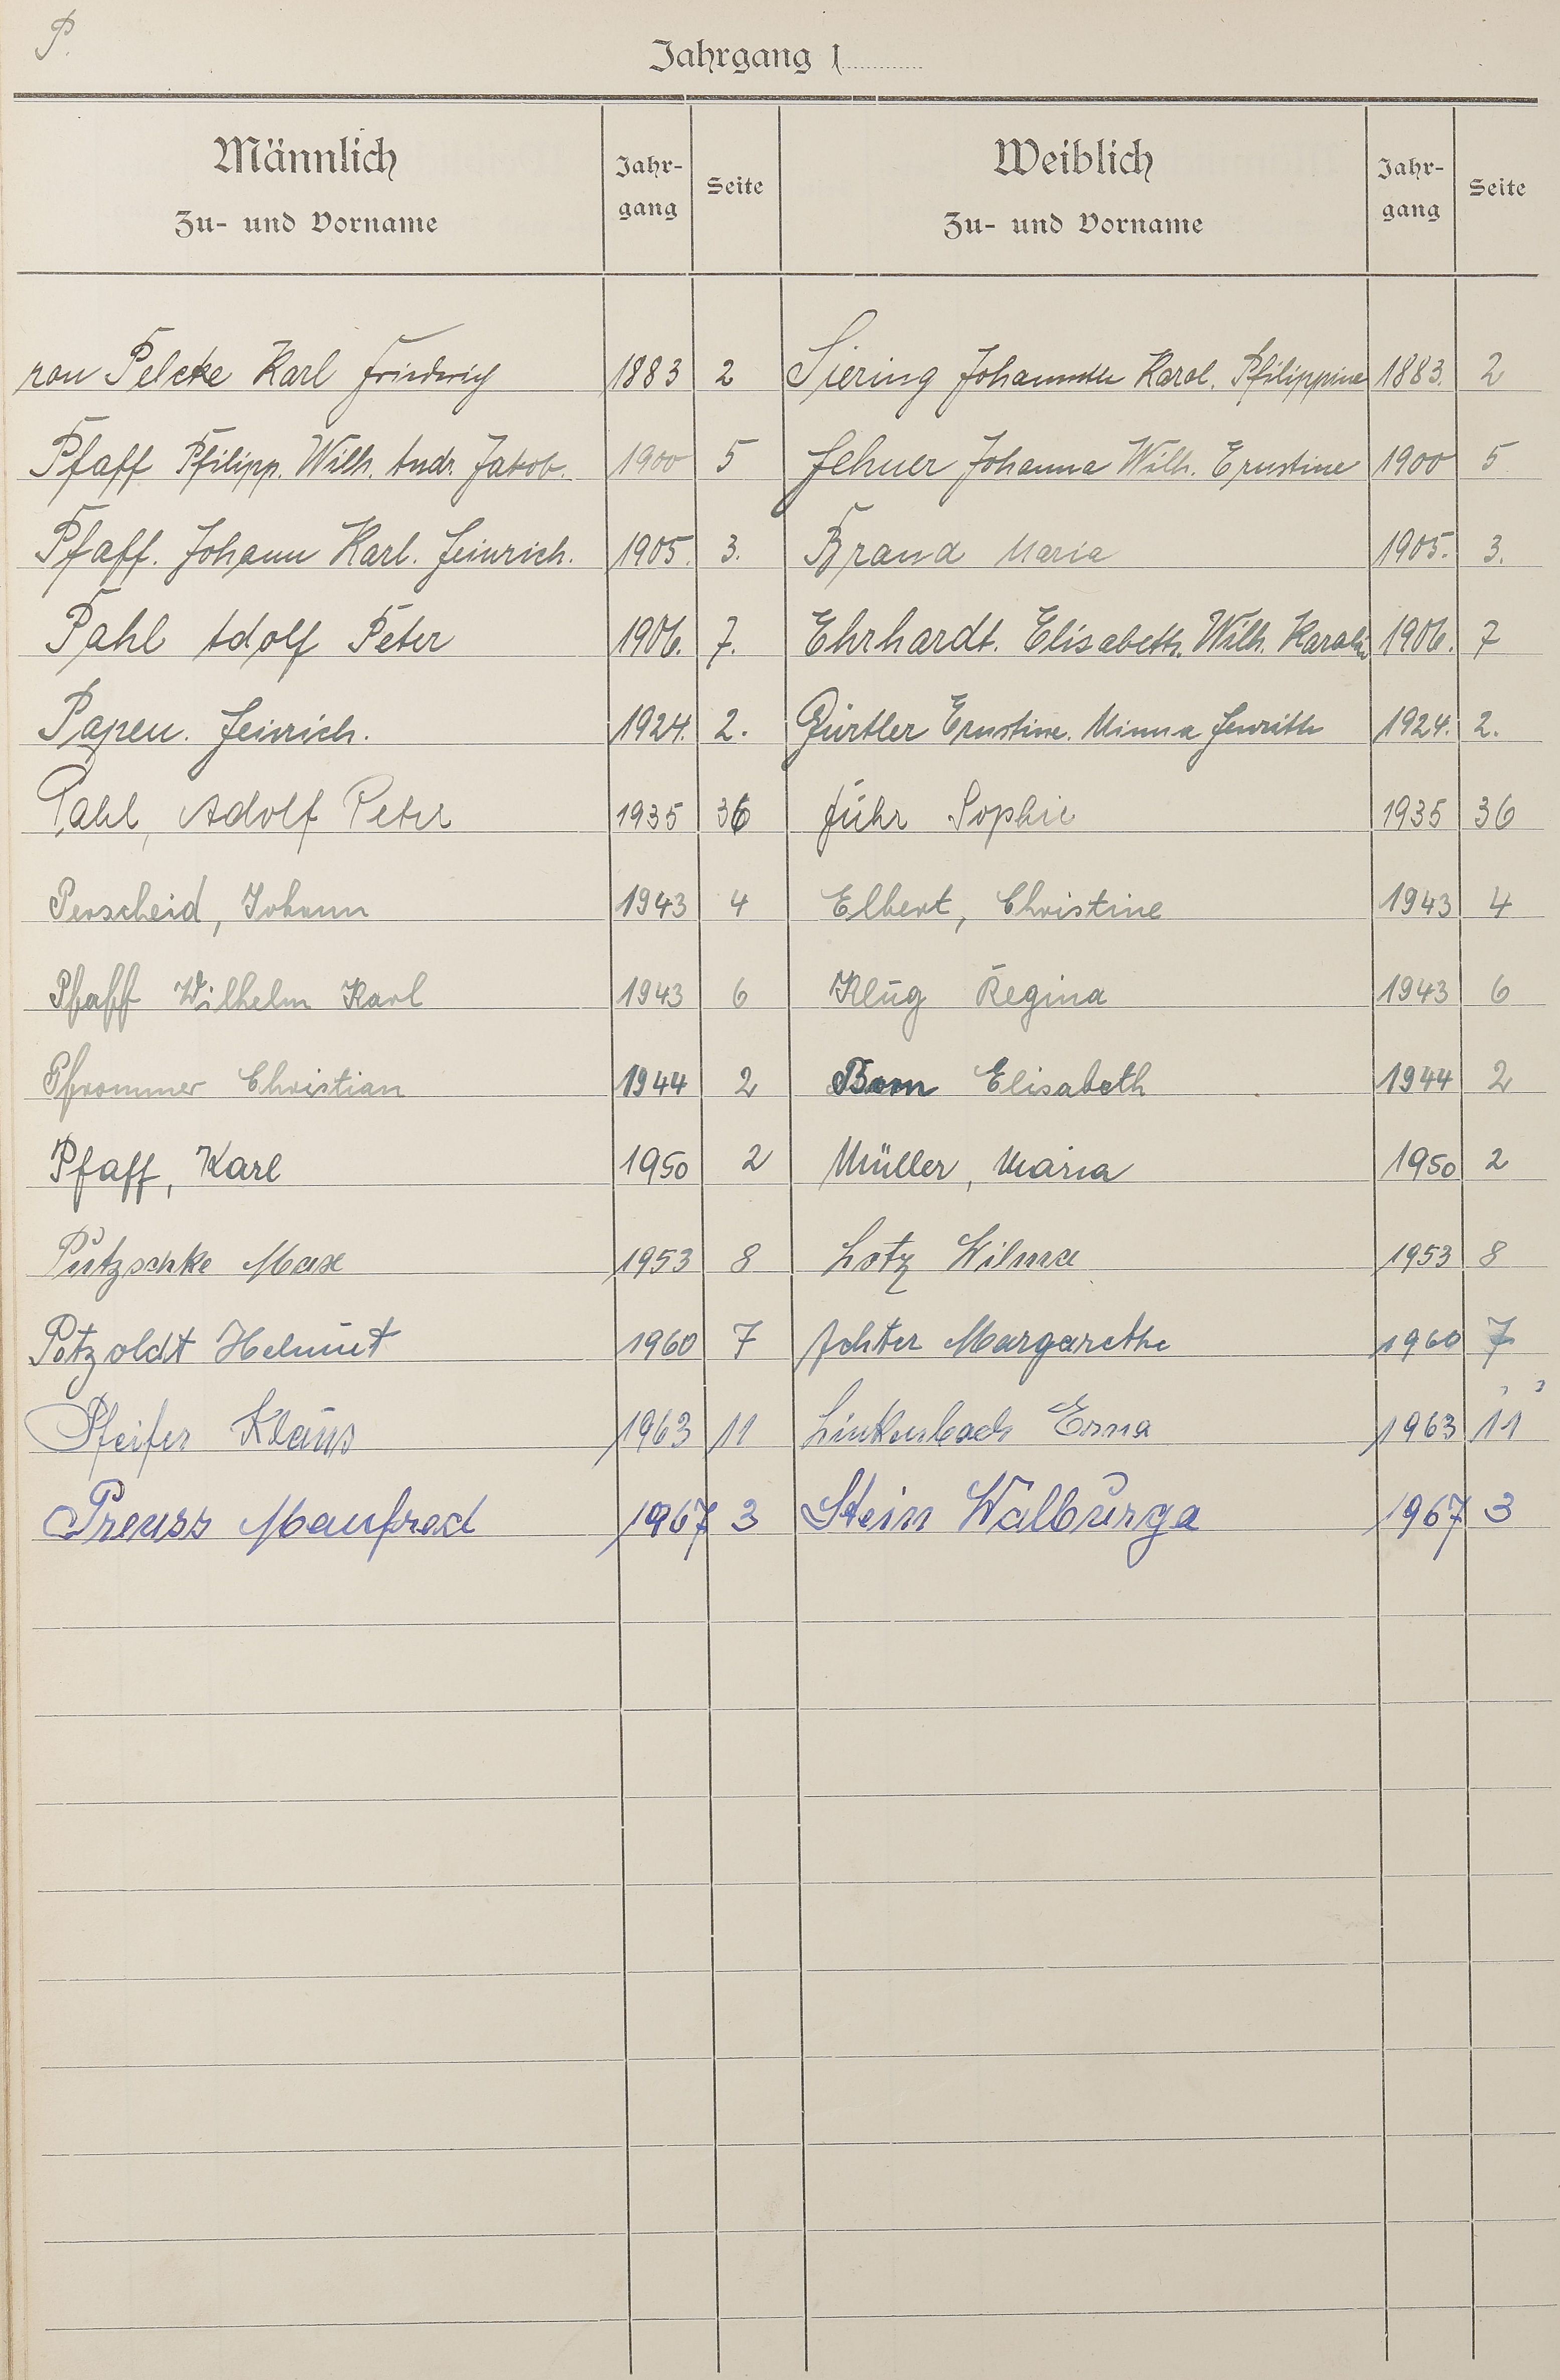 P.
Jahrgang 1
Männlich
Zu- und Vorname
Jahr-
gang
Seite
Weiblich
Zu- und Vorname
Jahr-
gang
Seite
von Pelcke Karl Friedrich 1883 2 Siering Johannette Karol. Philippine 1883. 2
Pfaff Philipp. Wilh. Andr. Jakob. 1900 5 Lehner Johanna Wilh. Ernstine 1900 5
Pfaff. Johann Karl. Heinrich. 1905. 3. Brand Maria 1905. 3.
Pahl Adolf Peter 1906. 7. Ehrhardt. Elisabeth. Wilh. Karolin 1906. 7
Papen. Heinrich. 1924. 2. Gürtler Ernstine. Minna Henriette 1924. 2.
Pahl, Adolf Peter 1935 36 Führ Sophie 1935 36
Perscheid, Johann 1943 4 Elbert, Christine 1943 4
Pfaff Wilhelm Karl 1943 6 Klug Regina 1943 6
Pfrommer Christian 1944 2 Born Elisabeth 1944 2
Pfaff, Karl 1950 2 Müller, Maria 1950 2
Putzschke Max 1953 8 Lotz Wilma 1953 8
Petzoldt Helmut 1960 7 Achter Margarethe 1960 7
Pfeifer Klaus 1963 11 Linkenbach Erna 1963 11
Preuss Manfred 1967 3 Stein Walburga 1967 3